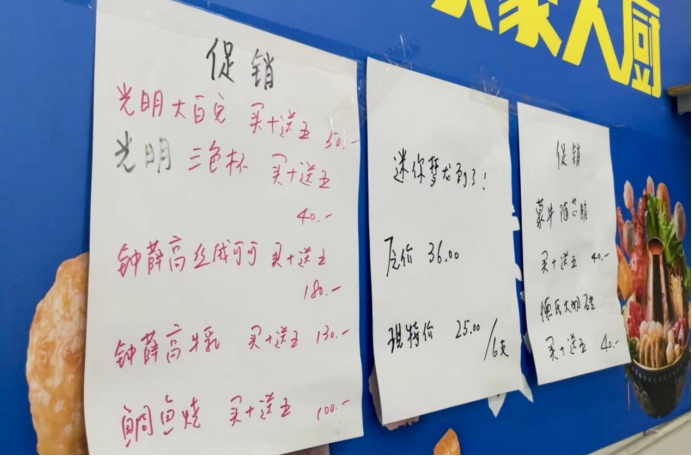 人厨
促销
光明大白兔 买十送五 50.-
光明 三色杯 买十送五
40.-
钟薛高丝绒可可 买十送五
180.-
钟薛高牛乳 买十送五 130.-
鲷鱼烧 买十送五 100.-
迷你梦龙到了!
原价 36.00
现特价 25.00
/6支
促销
蒙牛随芯脆
买十送五 40.-
德氏大奶
买十送五 40.-